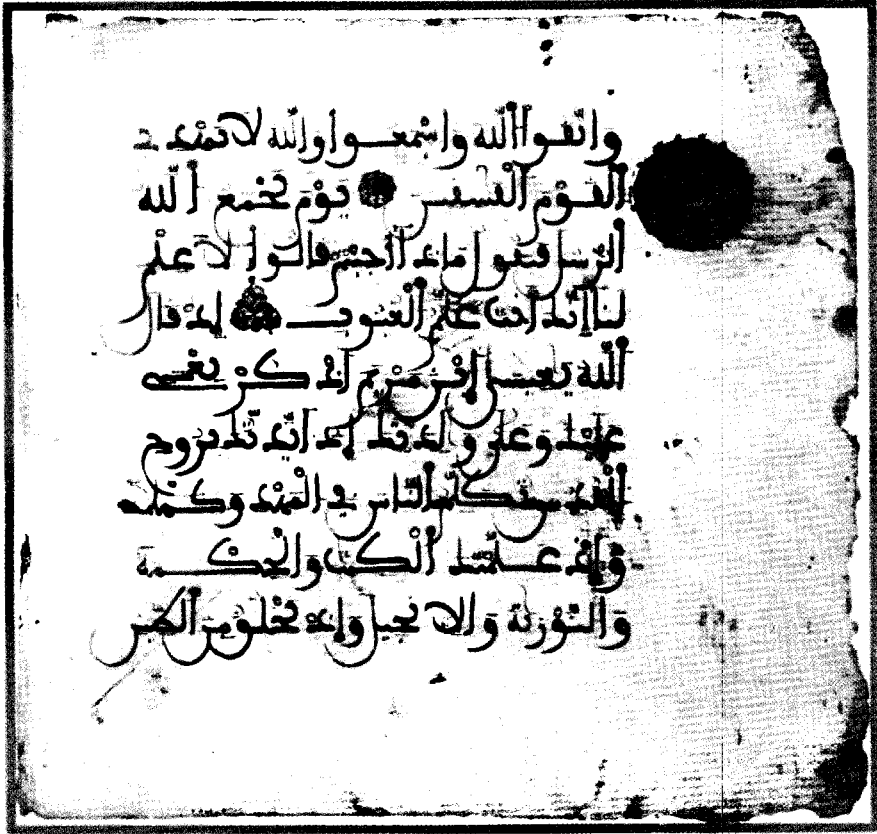 واتقوا الله واسمعوا والله لا يهد ي
القوم الفسقين يوم يجمع الله
الرسل فيقول ماذا أجبتم قالوا لا علم
لنا إنك أنت علم الغيوب إذ قال
الله يعيسى ابن مريم اذكر نعمتي
عليك وعلى ولدتك إذ أيدتك بروح
القدس تكلم الناس في المهد وكهلا
وإذ علمتك الكتب والحكمة
والتورية والانجيل وإذ تخلق من الطين